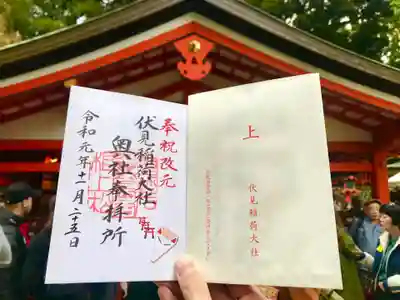 奉祝改元
伏見稲荷大社
奥社奉拝所
令和元年十一月二十五日
上
伏見稲荷大社